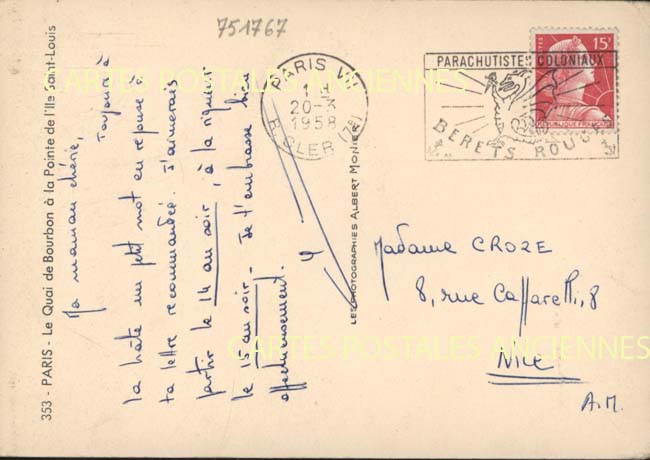 751767
353 - PARIS - Le Quai de Bourbon à la Pointe de l'Ile Saint-Louis
Ma maman chérie,
Toujours à
la hâte un petit mot en réponse à
ta lettre recommandée. J'aimerais
partir le 14 au soir, à la rigueur
le 15 au soir - Je t'embrasse bien
affectueusement.
LES PHOTOGRAPHIES ALBERT MONIER
PARIS VII
20-3
1958
R. CLER (7e)
PARACHUTISTES COLONIAUX
BERETS ROUGES
15F
REPUBLIQUE FRANÇAISE
Madame CROZE
8, rue Caffarelli, 8
NICE
A.M.
CARTES POSTALES ANCIENNES
CARTES POSTALES ANCIENNES